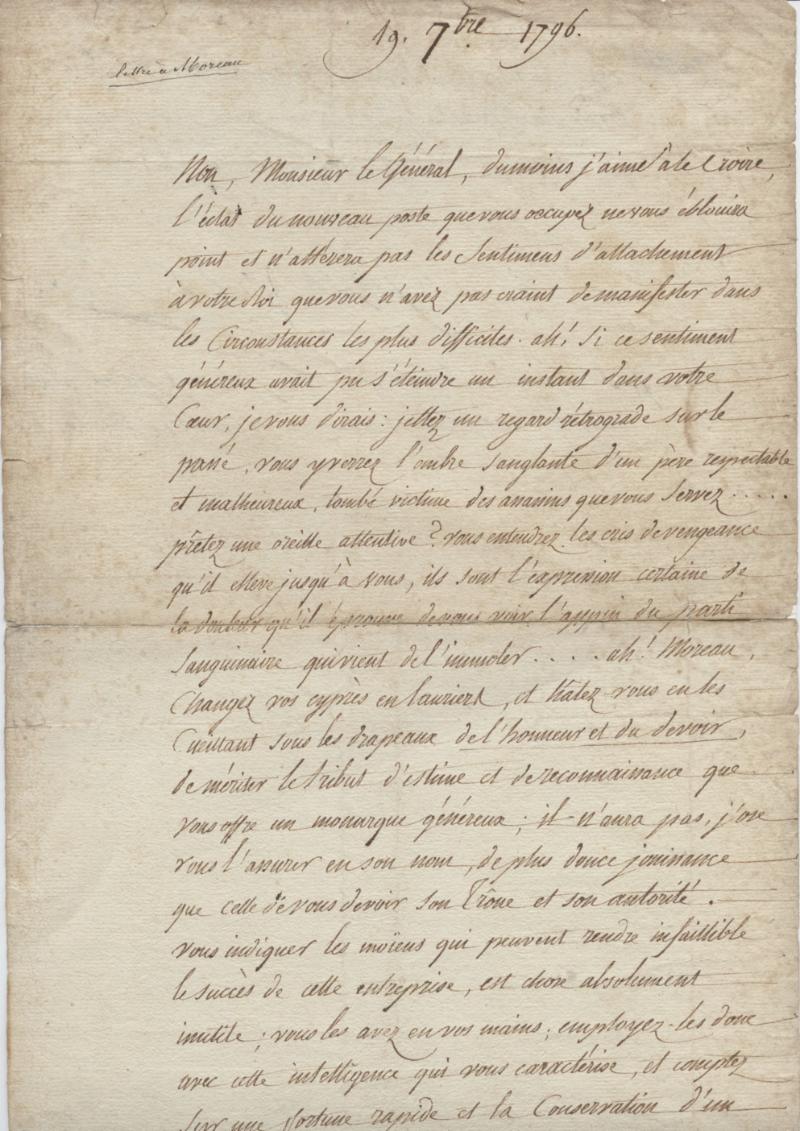 19. 7bre 1796.
lettre à Moreau
Non, Monsieur le Général, dumoins j'aime à le Croire,
l'éclat du nouveau poste que vous occupez ne vous éblouira
point et n'altèrera pas les Sentimens d'attachement
à votre Roi que vous n'avez pas craint de manifester dans
les Circonstances les plus difficiles. ah! Si ce sentiment
généreux avait pu s'éteindre un instant dans votre
Cœur, je vous dirais: jettez un regard rétrograde sur le
passé, vous y verrez l'ombre sanglante d'un père respectable
et malheureux, tombé victime des assassins que vous Servez.....
prêtez une oreille attentive? vous entendrez les cris de vengeance
qu'il élève jusqu'à vous, ils sont l'expression certaine de
la douleur qu'il éprouve de vous voir l'appui du parti
Sanguinaire qui vient de l'immoler.... ah! Moreau,
Changez vos cyprès en lauriers, et hâtez vous en les
Cueillant sous les drapeaux de l'honneur et du devoir,
de mériter le tribut d'estime et de reconnaissance que
vous offre un monarque généreux; il n'aura pas, j'ose
vous l'assurer en son nom, de plus douce jouissance
que celle de vous devoir son Trône et son autorité.
vous indiquer les moïens qui peuvent rendre infaillible
le succès de cette entreprise, est chose absolument
inutile; vous les avez en vos mains; employez-les donc
avec cette intelligence qui vous caractérise, et comptez
sur une fortune rapide et la Conservation d'un